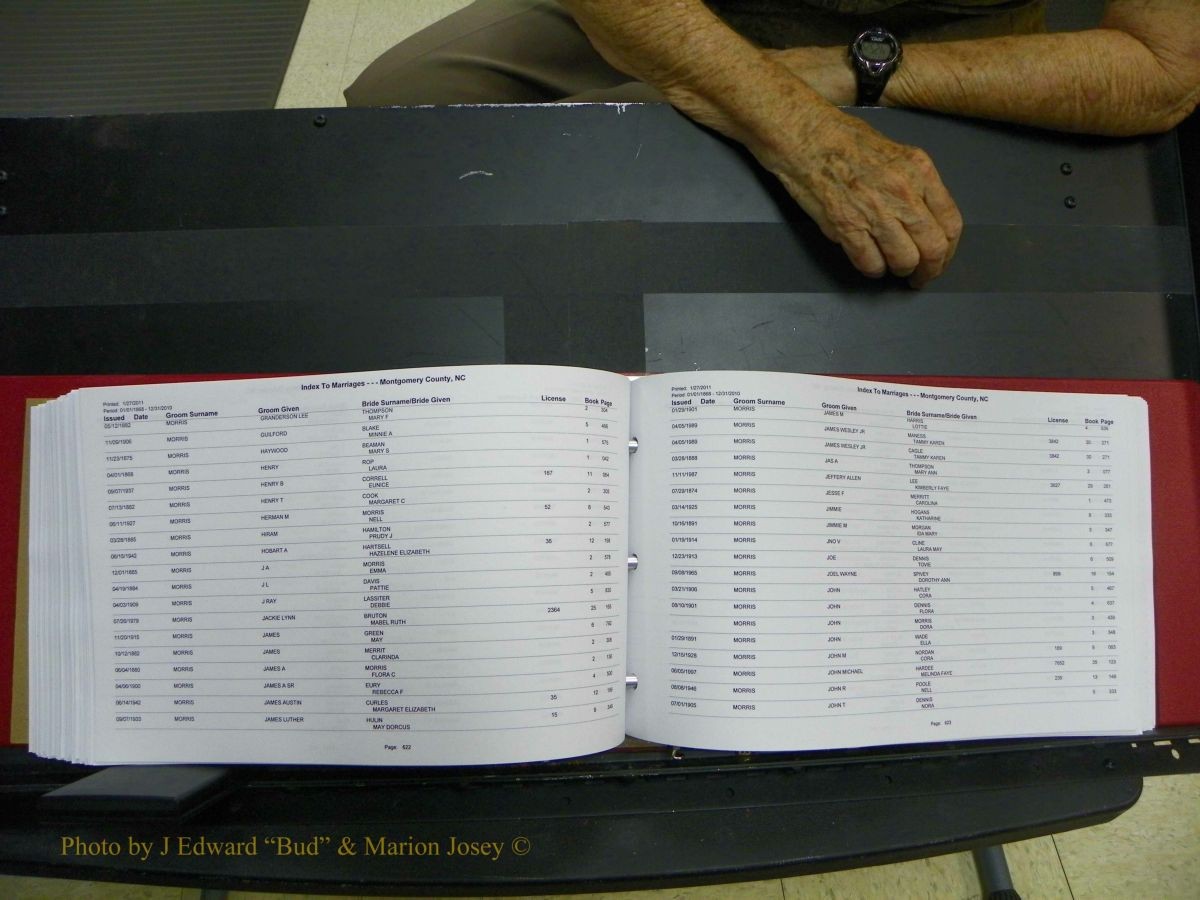 Index To Marriages - - - Montgomery County, NC
Printed: 1/27/2011
Period: 01/01/1868 - 12/31/2010
Issued Date Groom Surname Groom Given Bride Surname/Bride Given License Book Page
05/12/1882 MORRIS GRANDERSON LEE THOMPSON 2 304
MARY F
11/29/1906 MORRIS GUILFORD BLAKE 5 466
MINNIE A
11/23/1875 MORRIS HAYWOOD BEAMAN 1 575
MARY S
04/01/1868 MORRIS HENRY ROP 1 042
LAURA
09/07/1937 MORRIS HENRY B CORRELL 167 11 064
EUNICE
07/13/1882 MORRIS HENRY T COOK 2 305
MARGARET C
06/11/1927 MORRIS HERMAN M MORRIS 52 8 543
NELL
03/28/1885 MORRIS HIRAM HAMILTON 2 577
PRUDY J
06/10/1942 MORRIS HOBART A HARTSELL 36 12 198
HAZELENE ELIZABETH
12/01/1885 MORRIS J A MORRIS 2 578
EMMA
04/19/1884 MORRIS J L DAVIS 2 466
PATTIE
04/03/1909 MORRIS J RAY LASSITER 5 820
DEBBIE
07/26/1979 MORRIS JACKIE LYNN BRUTON 2364 25 155
MABEL RUTH
11/20/1915 MORRIS JAMES GREEN 6 792
MAY
10/12/1882 MORRIS JAMES MERRIT 2 308
CLARINDA
06/04/1880 MORRIS JAMES A MORRIS 2 136
FLORA C
04/06/1900 MORRIS JAMES A SR EURY 4 500
REBECCA F
06/14/1942 MORRIS JAMES AUSTIN CURLES 35 12 199
MARGARET ELIZABETH
09/07/1933 MORRIS JAMES LUTHER HULIN 15 9 346
MAY DORCUS
Page: 622
Index To Marriages - - - Montgomery County, NC
Printed: 1/27/2011
Period: 01/01/1868 - 12/31/2010
Issued Date Groom Surname Groom Given Bride Surname/Bride Given License Book Page
01/29/1901 MORRIS JAMES M HARRIS 4
LOTTIE
04/05/1989 MORRIS JAMES WESLEY JR MANESS 3842 30 271
TAMMY KAREN
04/05/1989 MORRIS JAMES WESLEY JR CAGLE 3842 30 271
TAMMY KAREN
03/28/1888 MORRIS JAS A THOMPSON 3 077
MARY ANN
11/11/1987 MORRIS JEFFERY ALLEN LEE 3627 29 251
KIMBERLY FAYE
07/29/1874 MORRIS JESSE F MERRITT 1 473
CAROLINA
03/14/1925 MORRIS JIMMIE HOGANS 8 333
KATHARINE
10/16/1891 MORRIS JIMMIE M MORGAN 3 347
IDA MARY
01/19/1914 MORRIS JNO V CLINE 6 677
LAURA MAY
12/23/1913 MORRIS JOE DENNIS 6 509
TOVIE
09/08/1965 MORRIS JOEL WAYNE SPIVEY 899 18 154
DOROTHY ANN
03/21/1906 MORRIS JOHN HATLEY 5 407
CORA
08/10/1901 MORRIS JOHN DENNIS 4 637
FLORA
MORRIS JOHN MORRIS 3 439
DORA
01/29/1891 MORRIS JOHN WADE 3 348
ELLA
12/15/1928 MORRIS JOHN M NORDAN 189 9 063
CORA
06/05/1997 MORRIS JOHN MICHAEL HARDEE 7652 35 123
MELINDA FAYE
06/08/1946 MORRIS JOHN R POOLE 239 13 149
NELL
07/01/1905 MORRIS JOHN T DENNIS 5 333
NORA
Page: 623
Photo by J Edward “Bud” & Marion Josey ©